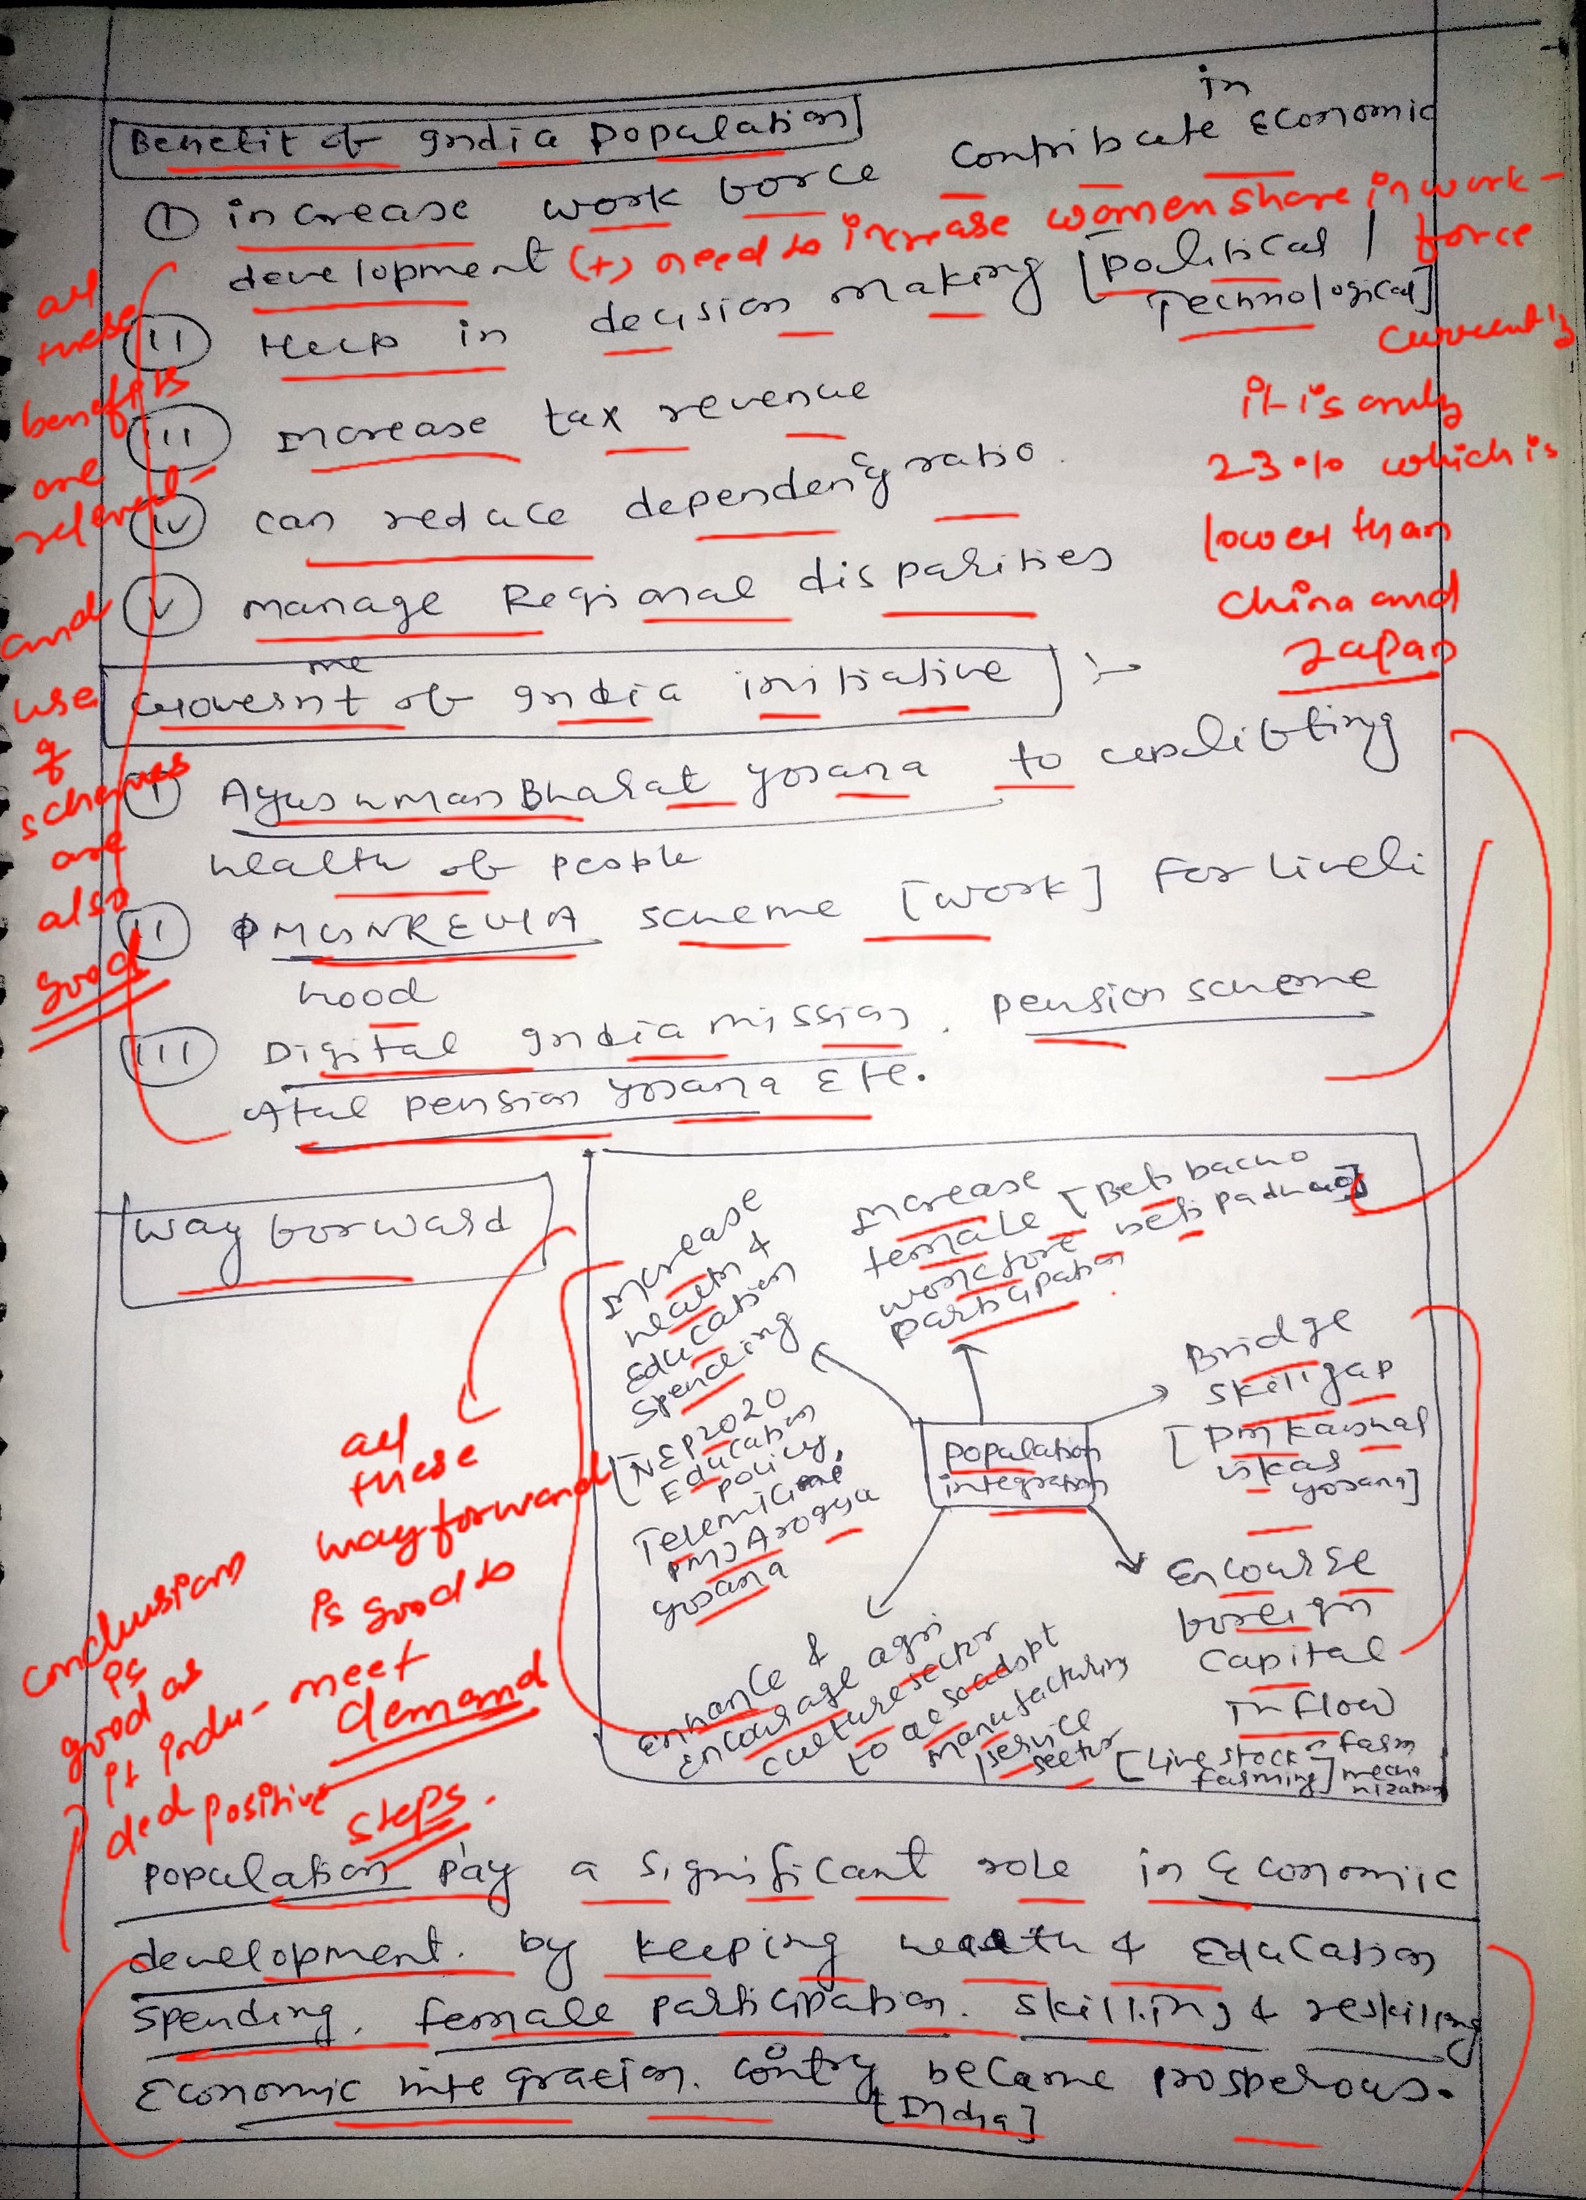 Benefit of India Population
① increase work force contribute in Economic
development (+) need to increase women share in work-
force
(II) Help in decision making [Political /
Technological]
currently
it is only
23% which is
lower than
China and
Japan
(III) Increase tax revenue
(IV) can reduce dependency ratio.
(V) manage Regional disparities
all
these
benefits
are
relevant
and
use
of
schemes
are
also
good
Government of India initiative :-
(I) Ayushman Bharat Yojana to uplifting
health of people
(II) MGNREGA scheme [work] For liveli
hood
(III) Digital India mission, pension scheme
Atal pension yojana Etc.
Way forward
Increase
health &
Education
Spending
[NEP2020
Education
policy,
Telemicine
PMJ Arogya
yojana
Increase
female [Beti bacho
workfore beti padhao]
participation
Bridge
skill gap
[PM Kaushal
vikas
yojana]
Population
integration
Encourse
foreign
Capital
inflow
Enhance &
encourage agri
culture sector
to also adopt
manufacturing
/service
sector
[Live stock
farming]
farm
mecha
nization
all
these
way forward
is good to
meet
demand
conclusion
is
good as
it inclu-
ded positive
steps.
Population pay a significant role in Economic
development. by keeping health & Education
spending, female participation. skilling & reskilling
Economic integracion. contry became prosperous.
[India]